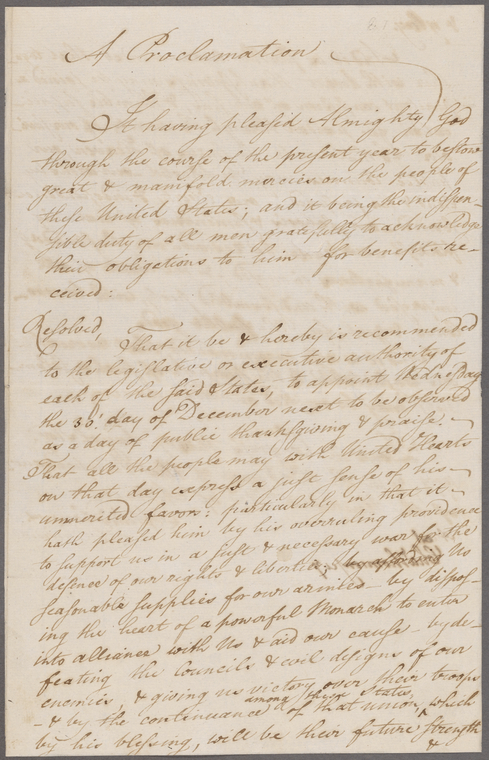 A Proclamation
It having pleased Almighty God
through the course of the present year to bestow
great & manifold mercies on the people of
these United States; and it being the indispen-
sible duty of all men gratefully to acknowledge
their obligations to him for benefits re-
ceived:
Resolved, That it be & hereby is recommended
to the legislative or executive authority of
each of the said States, to appoint Wednesday
the 30th day of December next to be observed
as a day of public thanksgiving & praise.
That all the people may with United Hearts
on that day express a just sense of his
unmerited favor: particularly in that it
hath pleased him by his overruling providence
to support us in a just & necessary war for the
defence of our rights & liberties, by Us
seasonable supplies for our armies - by dispos-
ing the heart of a powerful Monarch to enter
into alliance with Us & aid our cause - by de-
feating the Councils & evil designs of our
enemies, & giving us victory over their troops
among these States,
- & by the continuance of that union, which
by his blessing, will be their future strength
&